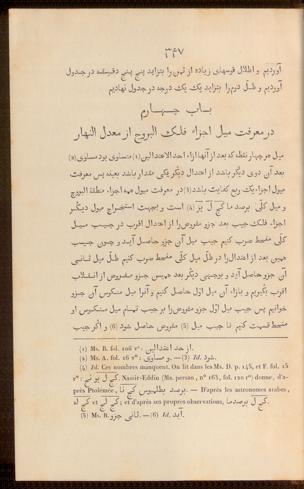 ٣٤٧
آوردیم و اظلال قوسهای زیاده از ثمن را بتزاید پنج پنج دقیقه در جدول
آوردیم و ظل دوم را بتزاید یک یک درجه در جدول نهادیم
بـاب چـهـارم
در معرفت میل اجزاء فلک البروج از معدل النهار
میل هر چهار نقطه که بعد از آنها از احد الاعتدالین (1) متساوی بود مساوی (2)
بعد آن دوی دیگر باشد از اعتدال دیگر یکی مقدار باشد بعینه پس معرفت
میول اجزاء یک ربع کفایت باشد (3) در معرفت میول همه اجزاء منطقة البروج
و میل کلی برصد ما کج ل یز (4) است و بجهت استخراج میول دیگر
اجزاء فلک جیب بعد جزو مفروض را از اعتدال اقرب در جیب میل
کلی منحط ضرب کنیم جیب میل آن جزو حاصل آید و چون جیب
همین بعد از اعتدال را در ظل میل کلی منحط ضرب کنیم ظل میل ثانی
آن جزو حاصل آید و بوجهی دیگر بعد همین جزو مفروض از انقلاب
اقرب بگیریم و بازاء آن میل اول حاصل کنیم و آنرا میل منکوس آن جزو
خوانیم پس جیب میل اول جزو مفروض را بر جیب تمام میل منکوس او
منحط قسمت کنیم تا جیب میل (5) مفروض حاصل شود (6) و اگر جیب
(1) Ms. B. fol. 106 v° : از حد اعتدالین.
(2) Ms. A. fol. 16 v° : و مساوی. — (3) Id. شود.
(4) Id. Ces nombres manquent. On lit dans les Ms. D. p. 145, et F. fol. 15
v° : کج ل یو نی. Nassir-Eddin (Ms. persan, n° 163, fol. 120 r°) donne, d'a-
près Ptolémée, برصد بطلمیوس کج نا. — D'après les astronomes arabes,
کج له et کج ل; et d'après ses propres observations, برصد ما کج ل.
(5) Ms. B. ثانی جزو. — (6) Id. آید.